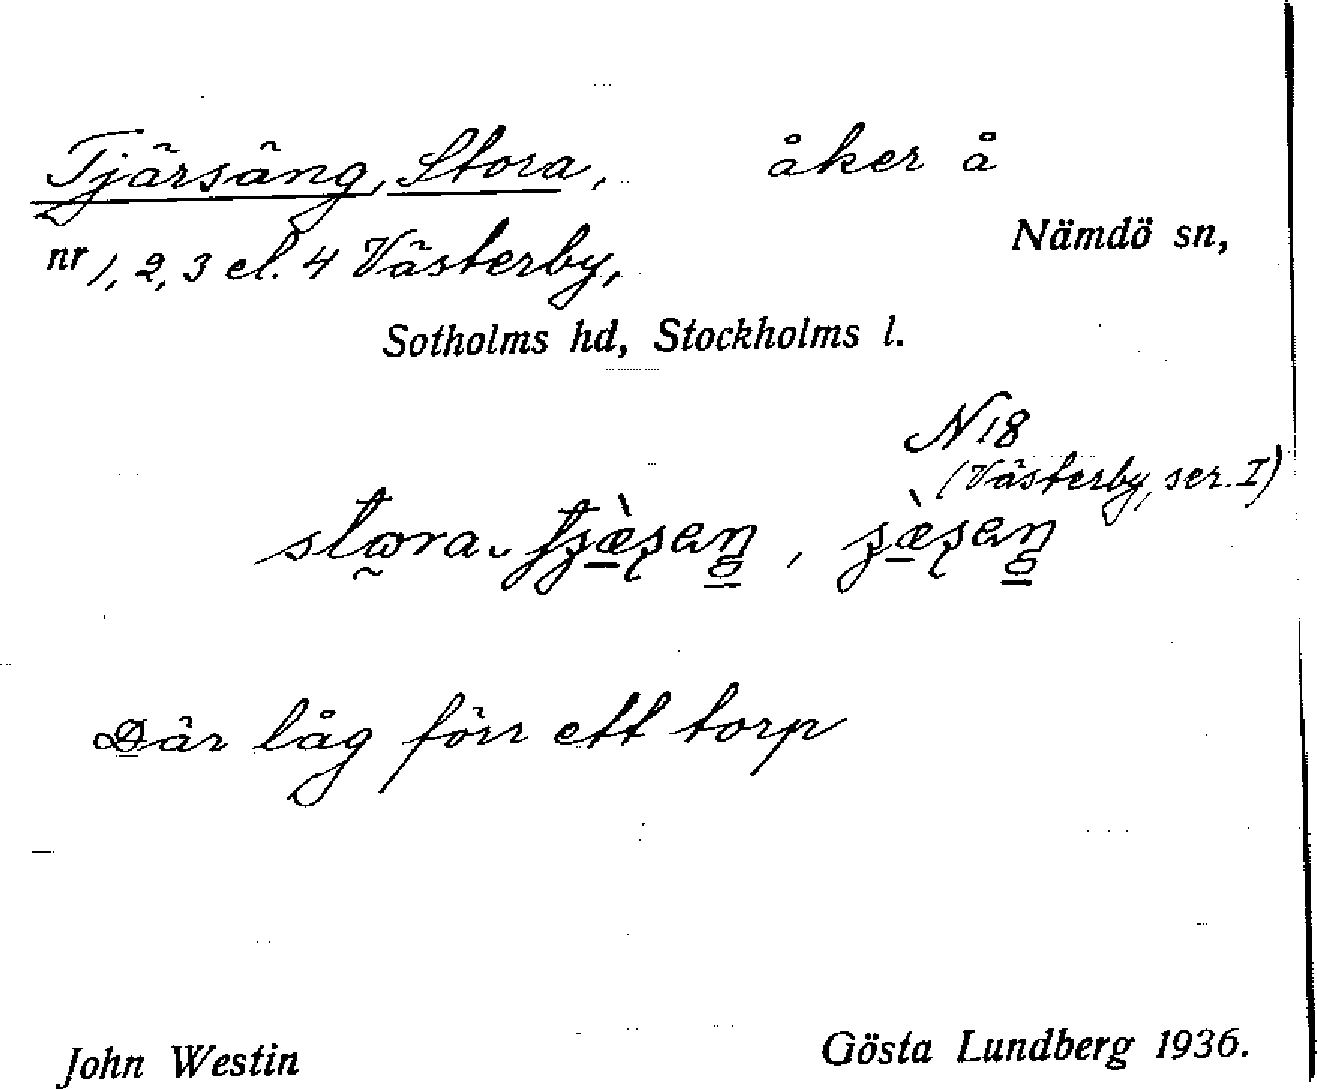 Tjärsäng, Stora, åker å
Nämdö sn,
nr 1, 2, 3 el. 4 Västerby,
Sotholms hd, Stockholms l.
N18
(Västerby, ser. I)
Där låg förr ett torp
John Westin Gösta Lundberg 1936.